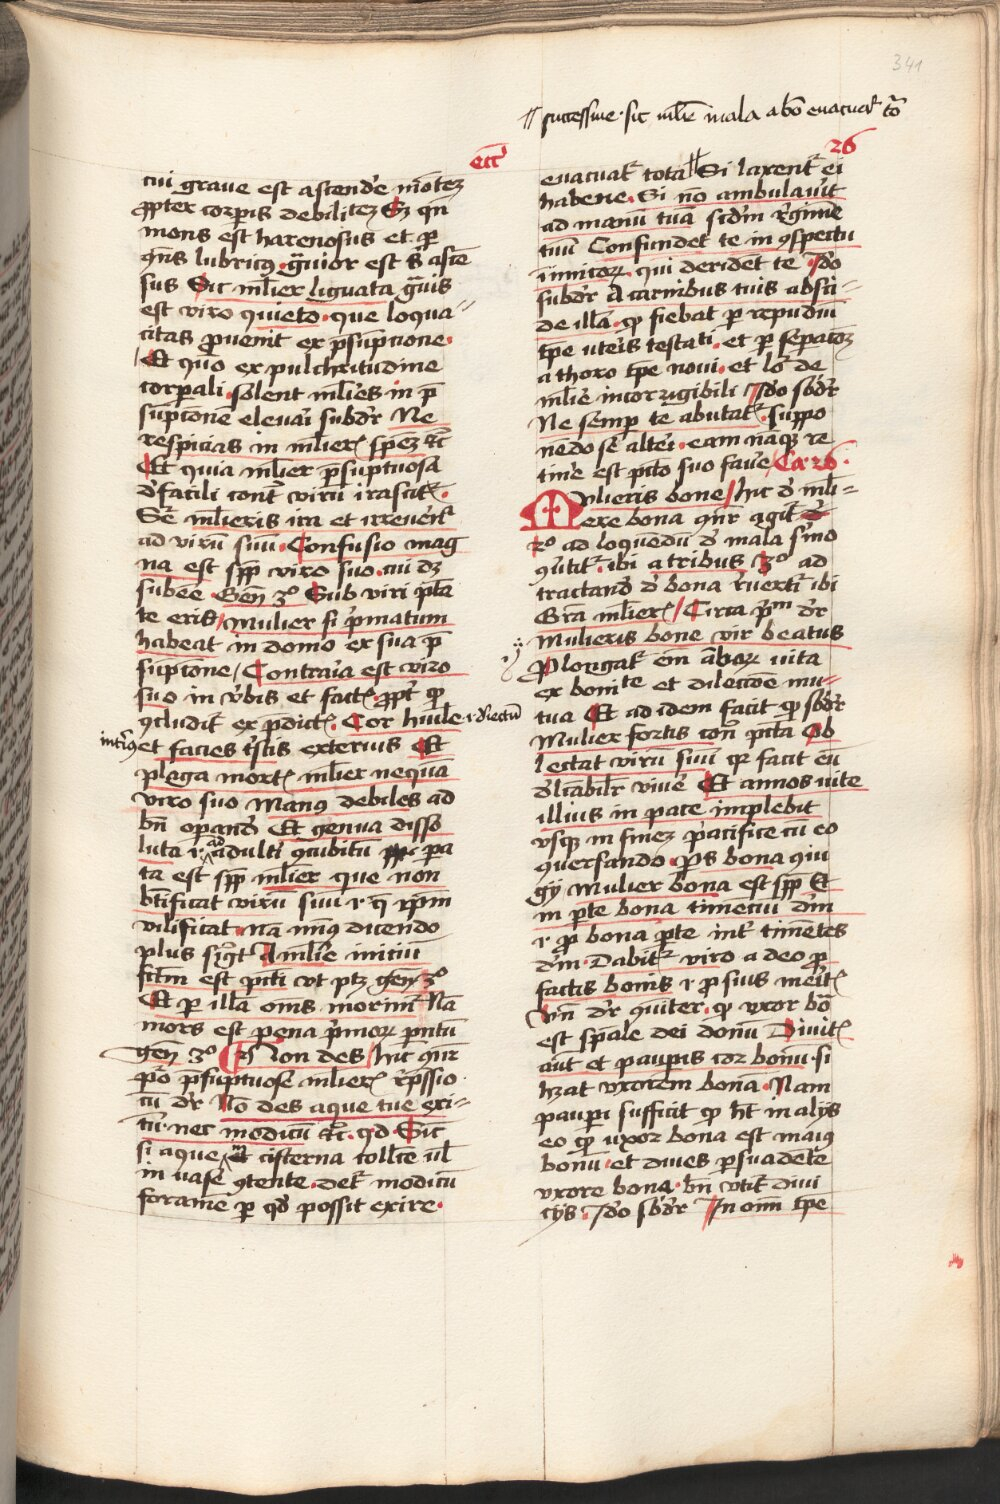 341
successiue · sic mlie mala a bo euacuat to
ecc
26
cui graue est ascende motez
ppter corpis debilitez Et qn
mons est harenosus et p
qns lubricus grauior est s ascen
sus Sic mlier liguata g̃uis
est viro quieto · que loqua
citas puenit ex psuptione ·
Et quo ex pulchritudine
corpali solent mlies in p
suptione eleuai subdr Ne
respicias in mlier spem etc
Et quia mlier psuptuosa
de facili cont viru irascit ·
Se mlieris ira et irreuent
ad viru suu · Confusio mag
na est spp viro suo · cui dz
subee Gen 3o Sub viri pta
te eris / Mulier si pmatum
habeat in domo ex sua p
suptione / Contraia est viro
suo in vbis et fact · ppt q
cludit ex pdict · Cor huile i · deiectu
intius et facies tstis exterius Et
plaga mort mlier nequa
viro suo Manus debiles ad
bn opand Et genua disso
luta i · ad adulti cubitu pa
ta est spp mlier que non
btificat viru suu i · q ipm
vilificat · na minus ducendo
plus sigt A mlie initiu
fctm est pcti vt ptz gen 3o
Et p illa oms morimr Na
mors est pena pmor pntu
gen 3o Non des / hic qnr
po psuptuose mlier rpssio
tu dr No des aque tue exi
tu · nec modicu etc · qd · Sic
si aque in cisterna collecte ul
in vase contente · det modicu
forame p qd possit exire ·
euacuat tota Si laxent ei
habene · Si no ambulauit
ad manu tua scdm rgime
tuu Confundet te in cspectu
iimicor · qui derident te Ido
subdr A carnibus tuis absci
de illa · q fiebat p repudiu
tpe uteis testati · et p sepatoez
a thoro tpe noui · et lo de
mlie incorrigibili Ido sbdr
Ne semp te abutat · suppo
nedo se altei · eam naq re
tine est pcto suo faue Ca · 26 ·
Mulieris bone / hic de mli
ere bona qnr agit
2o ad loquedu de mala sino
cutit · ibi a tribus 3o ad
tractand de bona reuertr ibi
Gra mlier / Circa pm dr
Mulieris bone vir beatus
Plongat em abor uita
ex bonite et dilectoe mu
tua Et ad idem facit q sbdr
Mulier fortis con pcta Ob
lectat viru suu qr facit eu
delcabilr viue Et annos uite
illius in pace implebit
vsque in finez pacifice cu eo
quersando · ps bona giu
gij Mulier bona est spp Et
in pte bona timenciu dm
i · p bona pte int timetes
dm · Dabitr viro a deo p
factis bonis i · p suis meit
vn dr quiter · q vxor bo
est spale dei donu Diuit
aut et paupis cor bonu · si
heat vxorem bona · Nam
paupi sufficit q ht in alijs
eo q uxor bona est maius
bonu · et diues psuadete
vxore bona · bn vtit diui
cijs · Ido sbdr In omi tpe